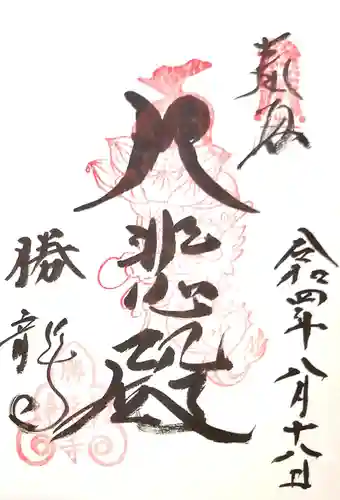 奉拝
令和四年八月十八日
大悲殿
勝龍